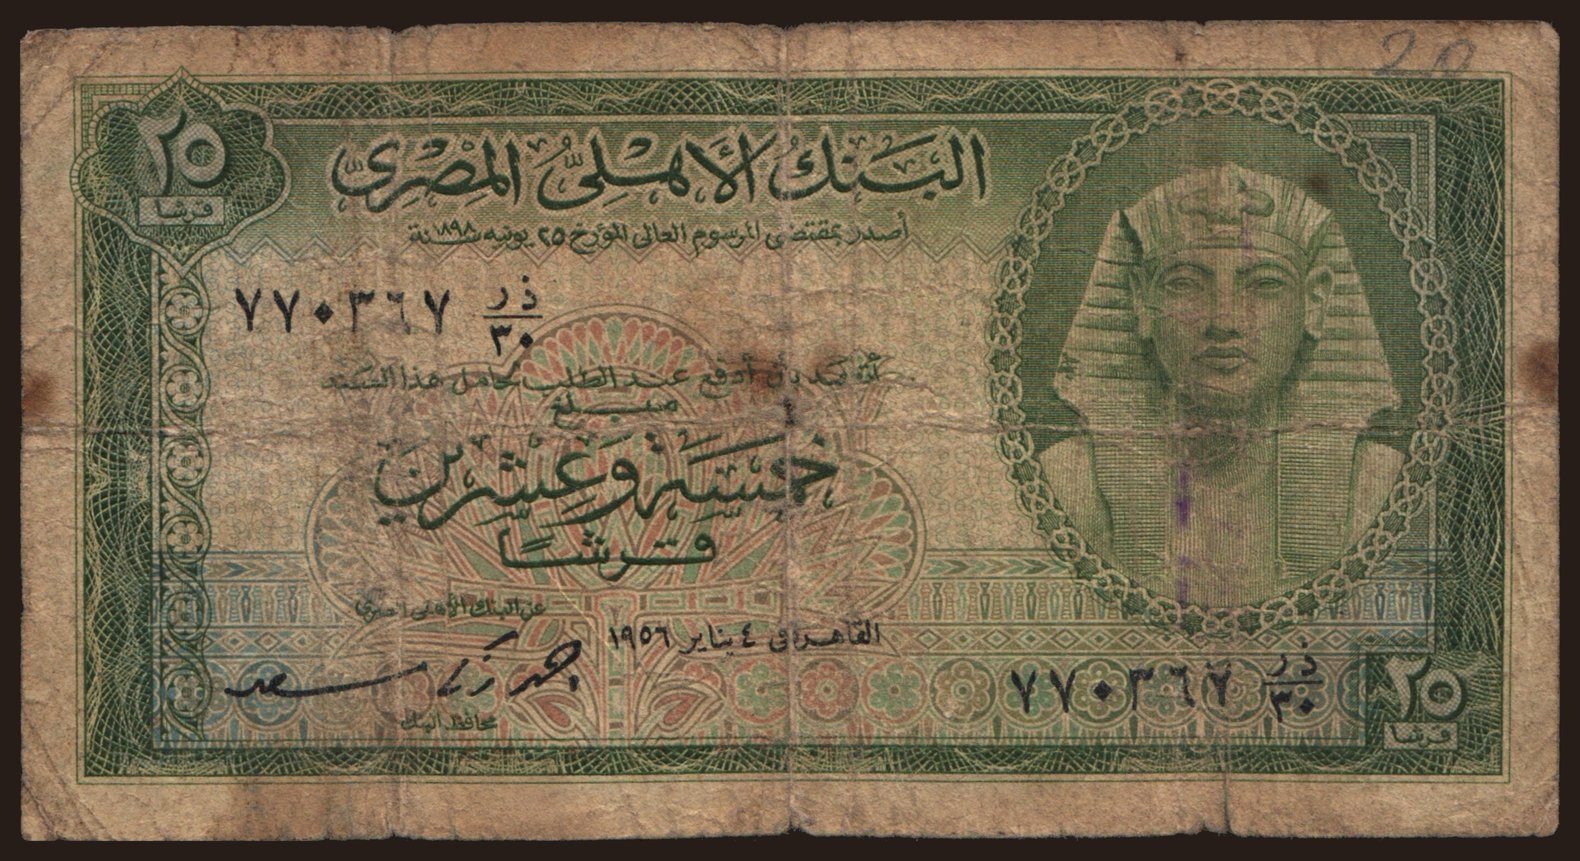 20
٢٥
قرشا
البَنكُ الأَهْلِىُّ المِصْرِىّ
أصدر بمقتضى المرسوم العالى المؤرخ ٢٥ يونيه سنة ١٨٩٨
٧٧٠٣٦٧ ذر/٣٠
أتعهد بأن أدفع عند الطلب لحامل هذا السند
مبلغ
خمسَة وَعِشِرين
قرشاً
عن البنك الأهلى المصرى
القاهرة فى ٤ يناير ١٩٥٦
احمد زكى سعد
محافظ البنك
٧٧٠٣٦٧ ذر/٣٠
٢٥
قرشا